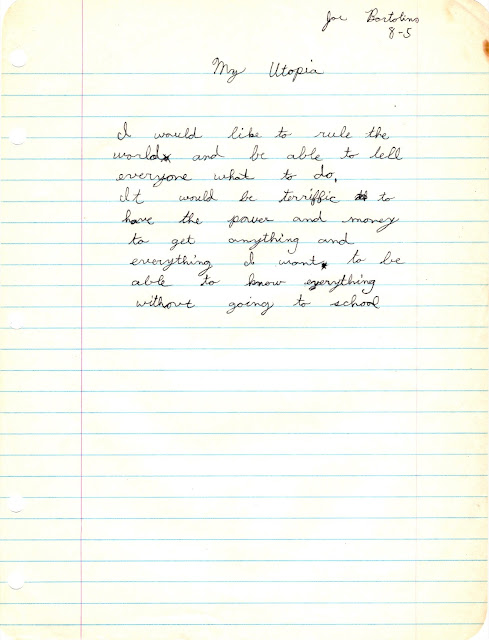 Joe Bortolins
8-5
My Utopia
I would like to rule the
world and be able to tell
everyone what to do.
It would be terriffic to
have the power and money
to get anything and
everything I want, to be
able to know everything
without going to school